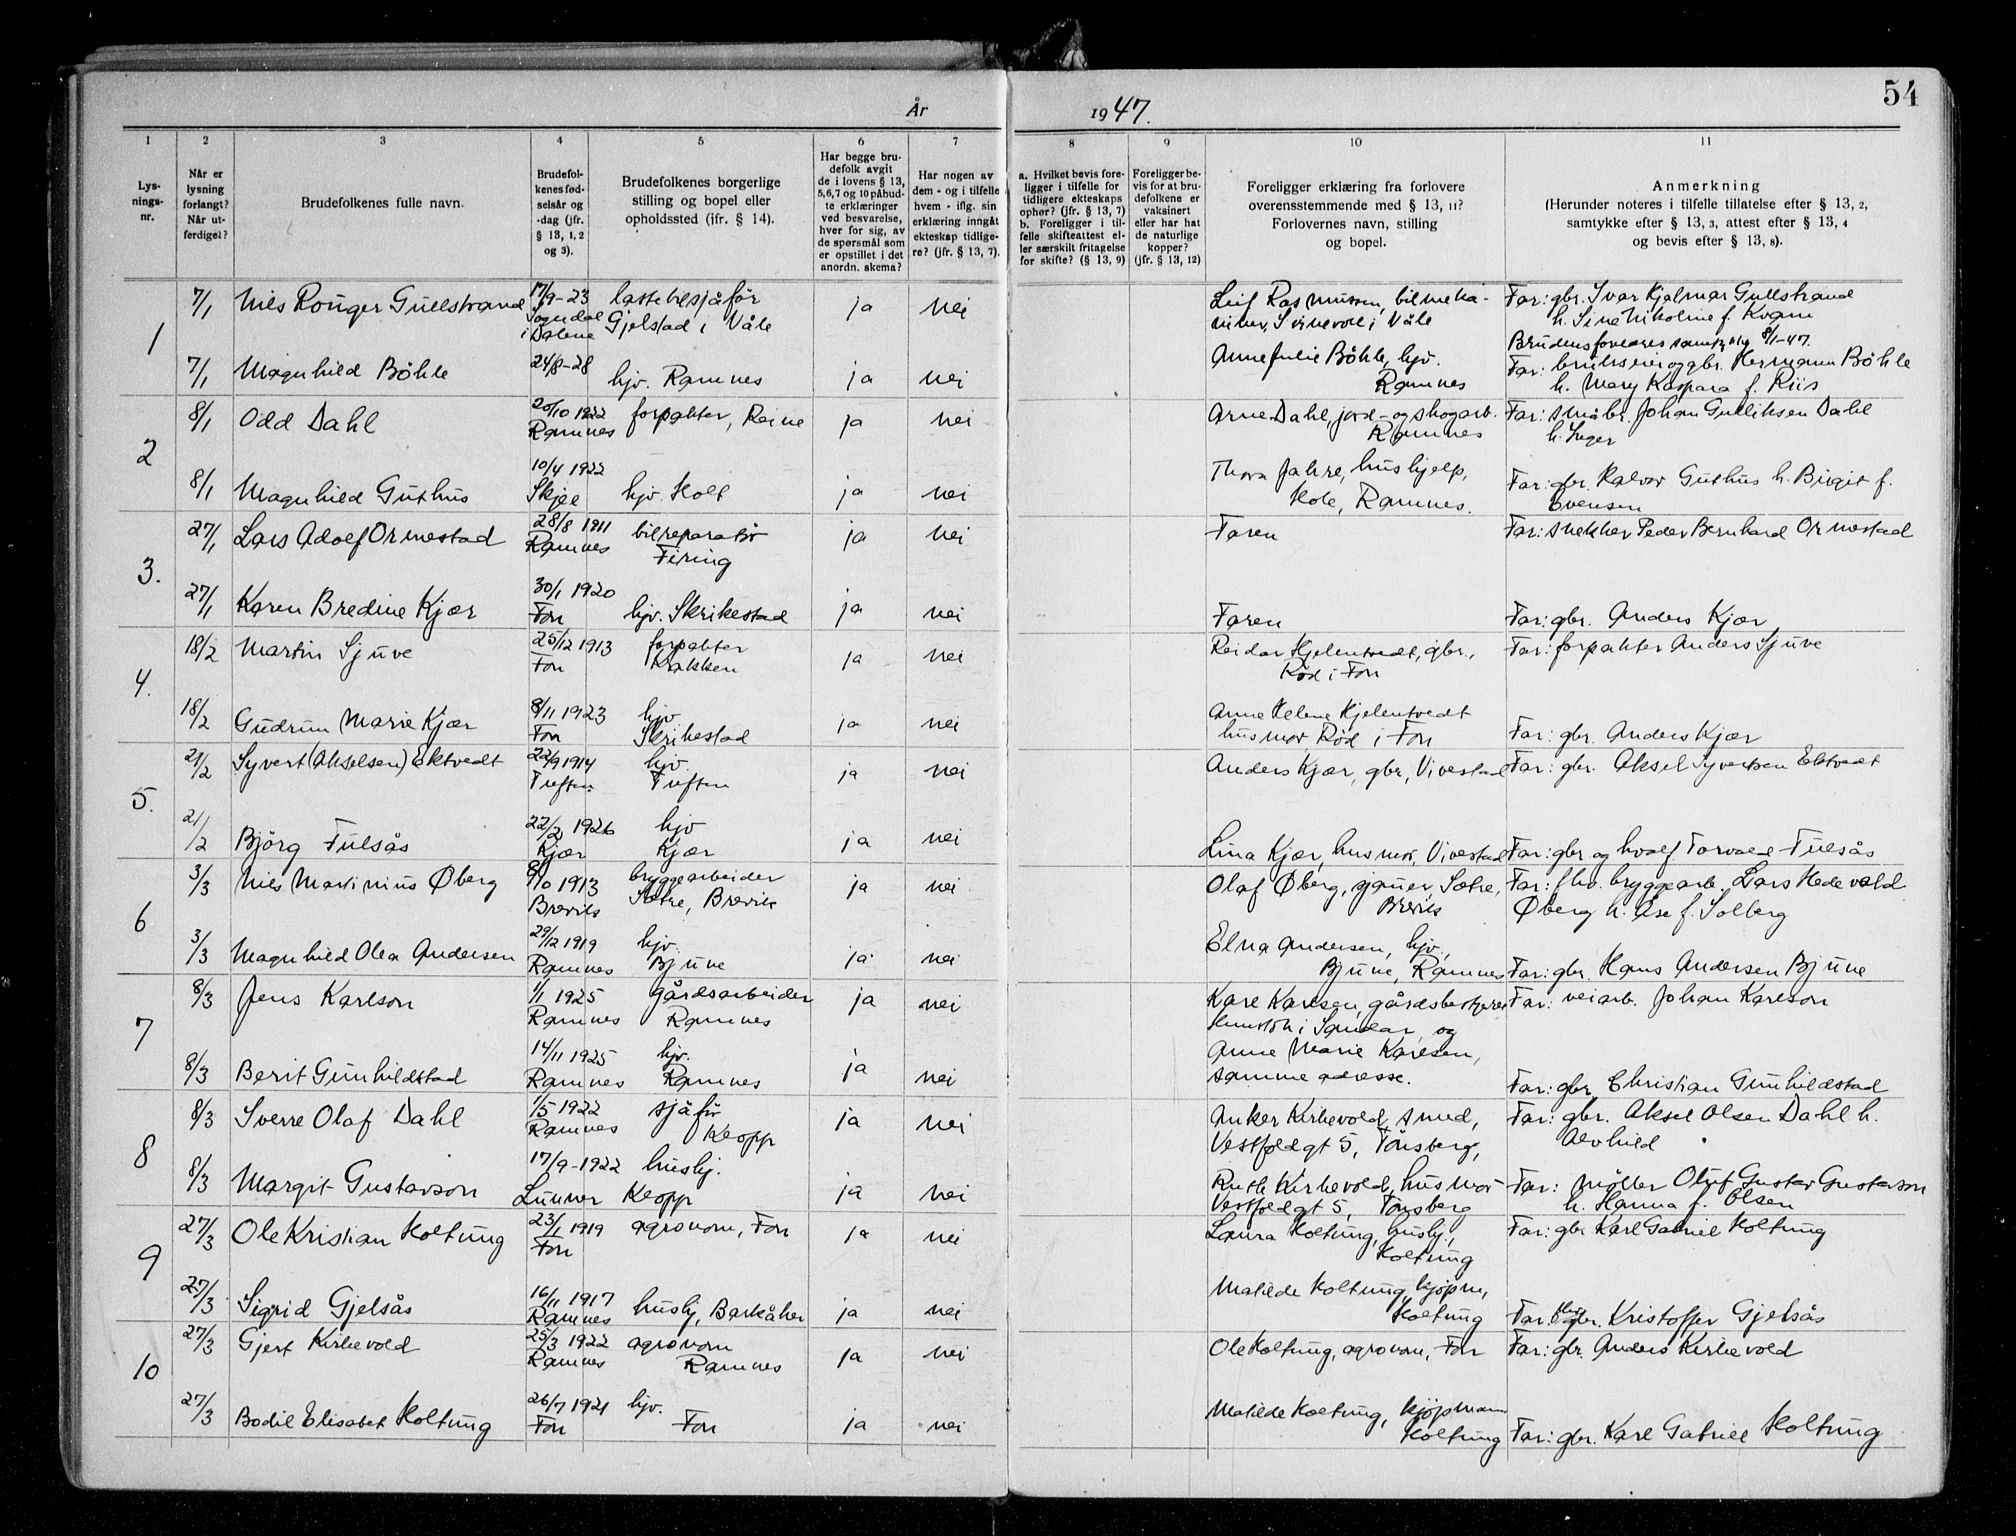 År 1947.
54
1 2 3 4 5 6 7 8 9 10 11
Lys-
nings-
nr.
Når er
lysning
forlangt?
Når ut-
ferdiget?
Brudefolkenes fulle navn.
Brudefol-
kenes fød-
selsår og
-dag (jfr.
§ 13, 1, 2
og 3).
Brudefolkenes borgerlige
stilling og bopel eller
opholdssted (jfr. § 14).
Har begge bru-
defolk avgit
de i lovens § 13,
5,6,7 og 10 påbud-
te erklæringer
ved besvarelse,
hver for sig, av
de spørsmål som
er opstillet i det
anordn. skema?
Har nogen av
dem - og i tilfelle
hvem - iflg. sin
erklæring inngått
ekteskap tidlige-
re? (jfr. § 13, 7).
a. Hvilket bevis fore-
ligger i tilfelle for
tidligere ekteskaps
ophør? (jfr. § 13, 7)
b. Foreligger i til-
felle skifteattest el-
ler særskilt fritagelse
for skifte? (§ 13, 9)
Foreligger be-
vis for at bru-
defolkene er
vaksinert
eller har hat
de naturlige
kopper?
(jfr. § 13, 12)
Foreligger erklæring fra forlovere
overensstemmende med § 13, 11?
Forlovernes navn, stilling
og bopel.
Anmerkning
(Herunder noteres i tilfelle tillatelse efter § 13, 2,
samtykke efter § 13, 3, attest efter § 13, 4
og bevis efter § 13, 8).
1
7/1 Nils Roger Gullstrand 17/9-23 lastebilsjåför ja nei Leif Rasmussen, bilmeka- Far: gbr. Ivar Hjalmar Gullstrand
Sogndal Gjelstad i Våle niker, Svinevoll i Våle h. Sine Nikoline f. Kvam
i Dalene Brudens foreldres samtykke 8/1-47.
7/1 Magnhild Böhle 24/8-28 hjv. Ramnes ja nei Anne Julie Böhle, hjv. Far: bruks eier og gbr. Hermann Böhle
Ramnes h. Mary Kaspara f. Riis
2
8/1 Odd Dahl 20/10 1922 forpakter, Reine ja nei Arne Dahl, jord- og skogarb. Far: småbr. Johan Gulliksen Dahl
Ramnes Ramnes h. Inger
8/1 Magnhild Guthus 10/4 1922 hjv. Holt ja nei Thora Jahre, hushjelp, Far: gbr. Halvor Guthus h. Birgit f.
Skjee Holt, Ramnes. Evensen
3.
27/1 Lars Adolf Ormestad 28/8 1911 bilreparatör ja nei Faren Far: snekker Peder Bernhard Ormestad
Ramnes Firing
27/1 Karen Bredine Kjær 30/1 1920 hjv. Skrikestad ja nei Faren Far: gbr. Anders Kjær
Fon
4.
18/2 Martin Sjuve 25/12 1913 forpakter ja nei Reidar Hjelentvedt, gbr., Far: forpakter Anders Sjuve
Fon Bakken Röd i Fon
18/2 Gudrun Marie Kjær 8/11 1923 hjv ja nei Anne Helene Hjelentvedt Far: gbr. Anders Kjær
Fon Skrikestad husmor, Röd i Fon
5.
21/2 Syvert (Akselsen) Ektvedt 22/9 1914 hjv. ja nei Anders Kjær, gbr., Vivestad Far: gbr. Aksel Syvertsen Ektvedt
Tuften Tuften
21/2 Björg Fulsås 22/2 1926 hjv ja nei Lina Kjær, husmor, Vivestad Far: gbr og hvalf Torvald Fulsås
Kjær Kjær
6
3/3 Nils Martinius Øberg 8/10 1913 bryggearbeider ja nei Olaf Øberg, gjauer, Sætre, Far: fhv. bryggearb. Lars Hedevald
Brevik Sætre, Brevik Brevik Øberg h. Åse f. Solberg
3/3 Magnhild Olea Andersen 29/12 1919 hjv. ja nei Elna Andersen, hjv. Far: gbr. Hans Andersen Bjune
Ramnes Bjune Bjune, Ramnes
7
8/3 Jens Karlson 1/1 1925 gårdsarbeider ja nei Kåre Karlsen, gårdsbestyrer Far: veiarb. Johan Karlson
Ramnes Ramnes i Sandar, og
8/3 Berit Gunhildstad 14/11 1925 hjv. ja nei Anne Marie Karlsen, Far: gbr. Christian Gunhildstad
Ramnes Ramnes samme adresse.
8
8/3 Sverre Olaf Dahl 1/5 1922 sjåför ja nei Anker Kirkevold, smed, Far: gbr. Aksel Olsen Dahl h.
Ramnes Klopp Vestfoldgt 5, Tönsberg, Alvhild
8/3 Margit Gustavson 17/9-1922 hushj. ja nei Ruth Kirkevold, husmor Far: möller Oluf Gustav Gustavson
Lunner Klopp Vestfoldgt 5, Tönsberg h. Hanna f. Olsen
9
27/3 Ole Kristian Holtung 23/1 1919 agronom, Fon ja nei Laura Holtung, hushj., Far: gbr Karl Gabriel Holtung
Fon Holtung
27/3 Sigrid Gjelsås 16/11 1917 hushj, Barkåker ja nei Matilde Holtung, kjøpm, Far: fhv. gbr. Kristoffer Gjelsås
Ramnes Holtung
10
27/3 Gjert Kirkevold 25/3 1922 agronom ja nei Ole Holtung, agronom, Fon Far: gbr. Anders Kirkevold
Ramnes Ramnes
27/3 Bodil Elisabet Holtung 26/7 1921 hjv. ja nei Matilde Holtung, kjöpmann Far: gbr. Karl Gabriel Holtung
Fon Fon Holtung